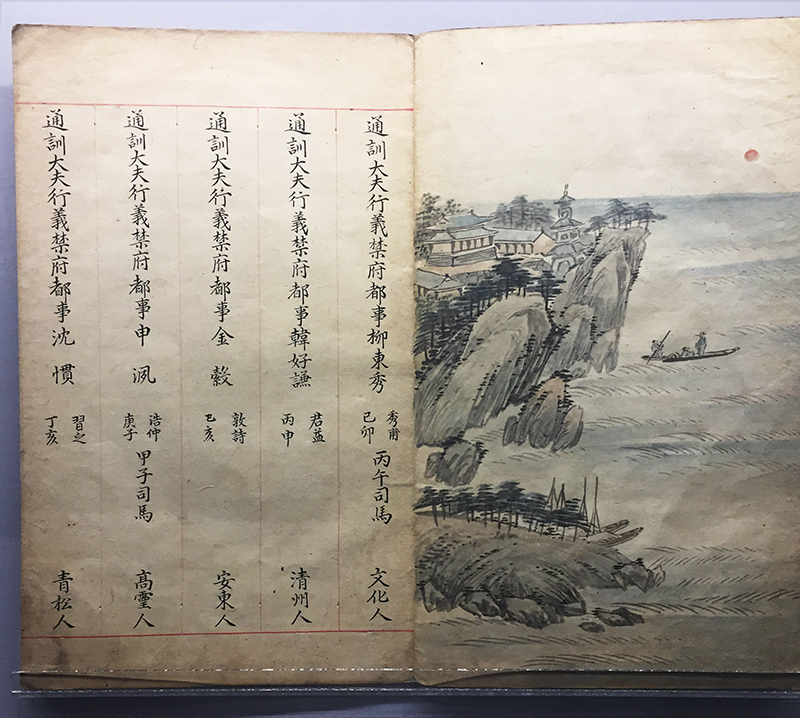 通訓大夫行義禁府都事柳東秀 秀甫 己卯 丙午司馬 文化人
通訓大夫行義禁府都事韓好謙 君益 丙申 清州人
通訓大夫行義禁府都事金縠 敦詩 己亥 安東人
通訓大夫行義禁府都事申 浩仲 庚子 甲子司馬 高靈人
通訓大夫行義禁府都事沈慣 習之 丁亥 青松人